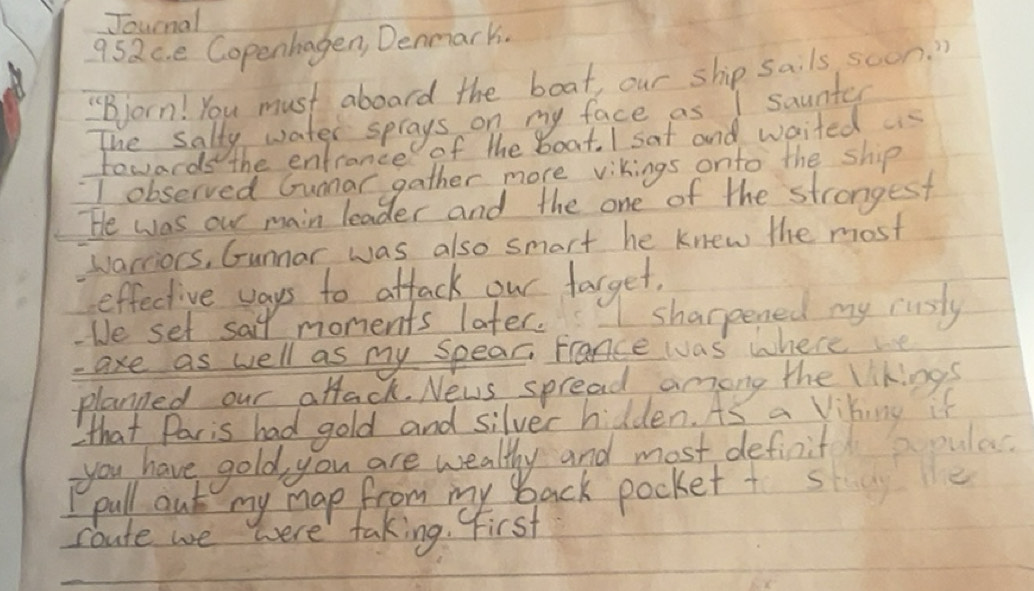 Journal
952 c.e Copenhagen, Denmark.
"Bjorn! You must aboard the boat, our ship sails soon."
The salty water sprays on my face as I saunter
towards the entrance of the boat. I sat and waited as
I observed Gunnar gather more vikings onto the ship
He was our main leader and the one of the strongest
warriors. Gunnar was also smart he knew the most
effective ways to attack our target.
We set sail moments later. I sharpened my rusty
axe as well as my spear. France was where we
planned our attack. News spread among the Vikings
that Paris had gold and silver hidden. As a Viking if
you have gold, you are wealthy and most definitely popular.
I pull out my map from my back pocket to study the
route we were taking. First